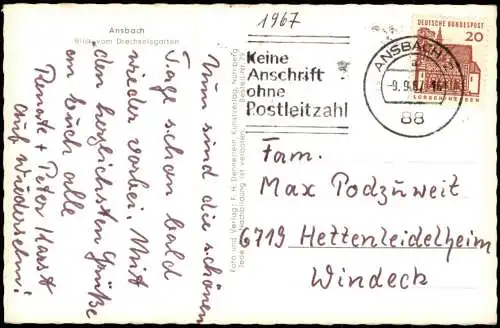 Ansbach
Blick vom Drechselsgarten
Nun sind die schönen
Tage schon bald
wieder vorbei. Mit
den herzlichsten Grüße
an Euch alle
Renate + Peter Karst
Auf Wiedersehn!
Foto und Verlag: F. H. Dennerlein, Kunstverlag, Nürnberg
Jede Nachbildung ist verboten.
1967
Keine
Anschrift
ohne
Postleitzahl
ANSBACH
a
-9.9.67-16
88
DEUTSCHE BUNDESPOST
20
LORSCH/HESSEN
Fam.
Max Podzuweit
6719 Hettenleidelheim
Windeck